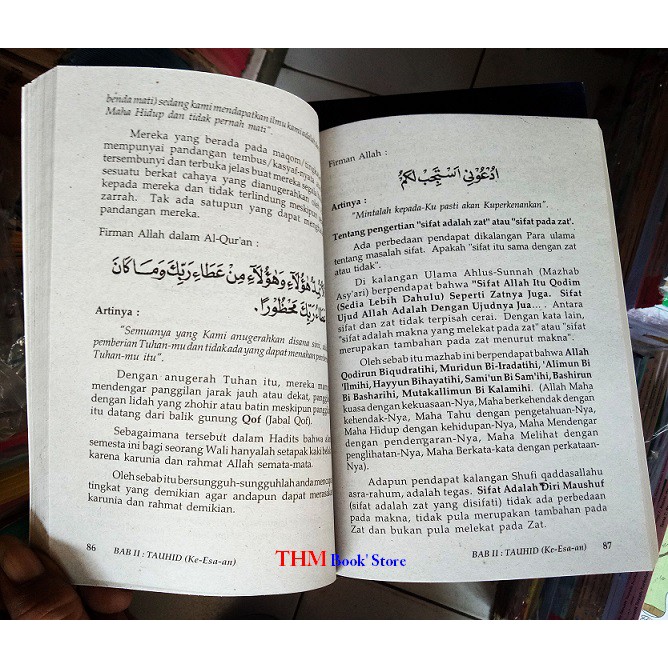 benda mati) sedang kami mendapatkan ilmu kami
Maha Hidup dan tidak pernah mati".
Mereka yang berada pada maqom/
mempunyai pandangan tembus/kasyaf-nyata
tersembunyi dan terbuka jelas buat mereka
sesuatu berkat cahaya yang dianugerahkan
kepada mereka dan tidak terlindung meskipun
zarrah. Tak ada satupun yang dapat
pandangan mereka.
Firman Allah dalam Al-Qur'an :
هٰؤُلَآءِ وَهٰؤُلَآءِ مِنْ عَطَاءِ رَبِّكَ وَمَا كَانَ
رَبِّكَ مَحْظُوْرًا.
Artinya :
"Semuanya yang Kami anugerahkan disana sini,
pemberian Tuhan-mu dan tidak ada yang dapat menahan
Tuhan-mu itu".
Dengan anugerah Tuhan itu, mereka
mendengar panggilan jarak jauh atau dekat,
dengan lidah yang zhohir atau batin meskipun
itu datang dari balik gunung Qof (Jabal Qof).
Sebagaimana tersebut dalam Hadits bahwa
semesta ini bagi seorang Wali hanyalah setapak kaki
karena karunia dan rahmat Allah semata-mata.
Oleh sebab itu bersungguh-sungguhlah anda
tingkat yang demikian agar andapun dapat
karunia dan rahmat demikian.
86 BAB II : TAUHID (Ke-Esa-an)
Firman Allah :
اُدْعُوْنِيْ اَسْتَجِبْ لَكُمْ
Artinya :
"Mintalah kepada-Ku pasti akan Kuperkenankan".
Tentang pengertian "sifat adalah zat" atau "sifat pada zat'.
Ada perbedaan pendapat dikalangan Para ulama
tentang masalah sifat. Apakah "sifat itu sama dengan zat
atau tidak".
Di kalangan Ulama Ahlus-Sunnah (Mazhab
Asy'ari) berpendapat bahwa "Sifat Allah Itu Qodim
(Sedia Lebih Dahulu) Seperti Zatnya Juga. Sifat
Ujud Allah Adalah Dengan Ujudnya Jua... Antara
sifat dan zat tidak terpisah cerai. Dengan kata lain,
"sifat adalah makna yang melekat pada zat" atau "sifat
merupakan tambahan pada zat menurut makna".
Oleh sebab itu mazhab ini berpendapat bahwa Allah
Qodirun Biqudratihi, Muridun Bi-Iradatihi, 'Alimun Bi
'Ilmihi, Hayyun Bihayatihi, Sami'un Bi Sam'ihi, Bashirun
Bi Basharihi, Mutakallimun Bi Kalamihi. (Allah Maha
kuasa dengan kekuasaan-Nya, Maha berkehendak dengan
kehendak-Nya, Maha Tahu dengan pengetahuan-Nya,
Maha Hidup dengan kehidupan-Nya, Maha Mendengar
dengan pendengaran-Nya, Maha Melihat dengan
penglihatan-Nya, Maha Berkata-kata dengan perkataan-
Nya).
Adapun pendapat kalangan Shufi qaddasallahu
asra-rahum, adalah tegas. Sifat Adalah Diri Maushuf
(sifat adalah zat yang disifati) tidak ada perbedaan
pada makna, tidak pula merupakan tambahan pada
Zat dan bukan pula melekat pada Zat.
BAB II : TAUHID (Ke-Esa-an) 87
THM Book' Store